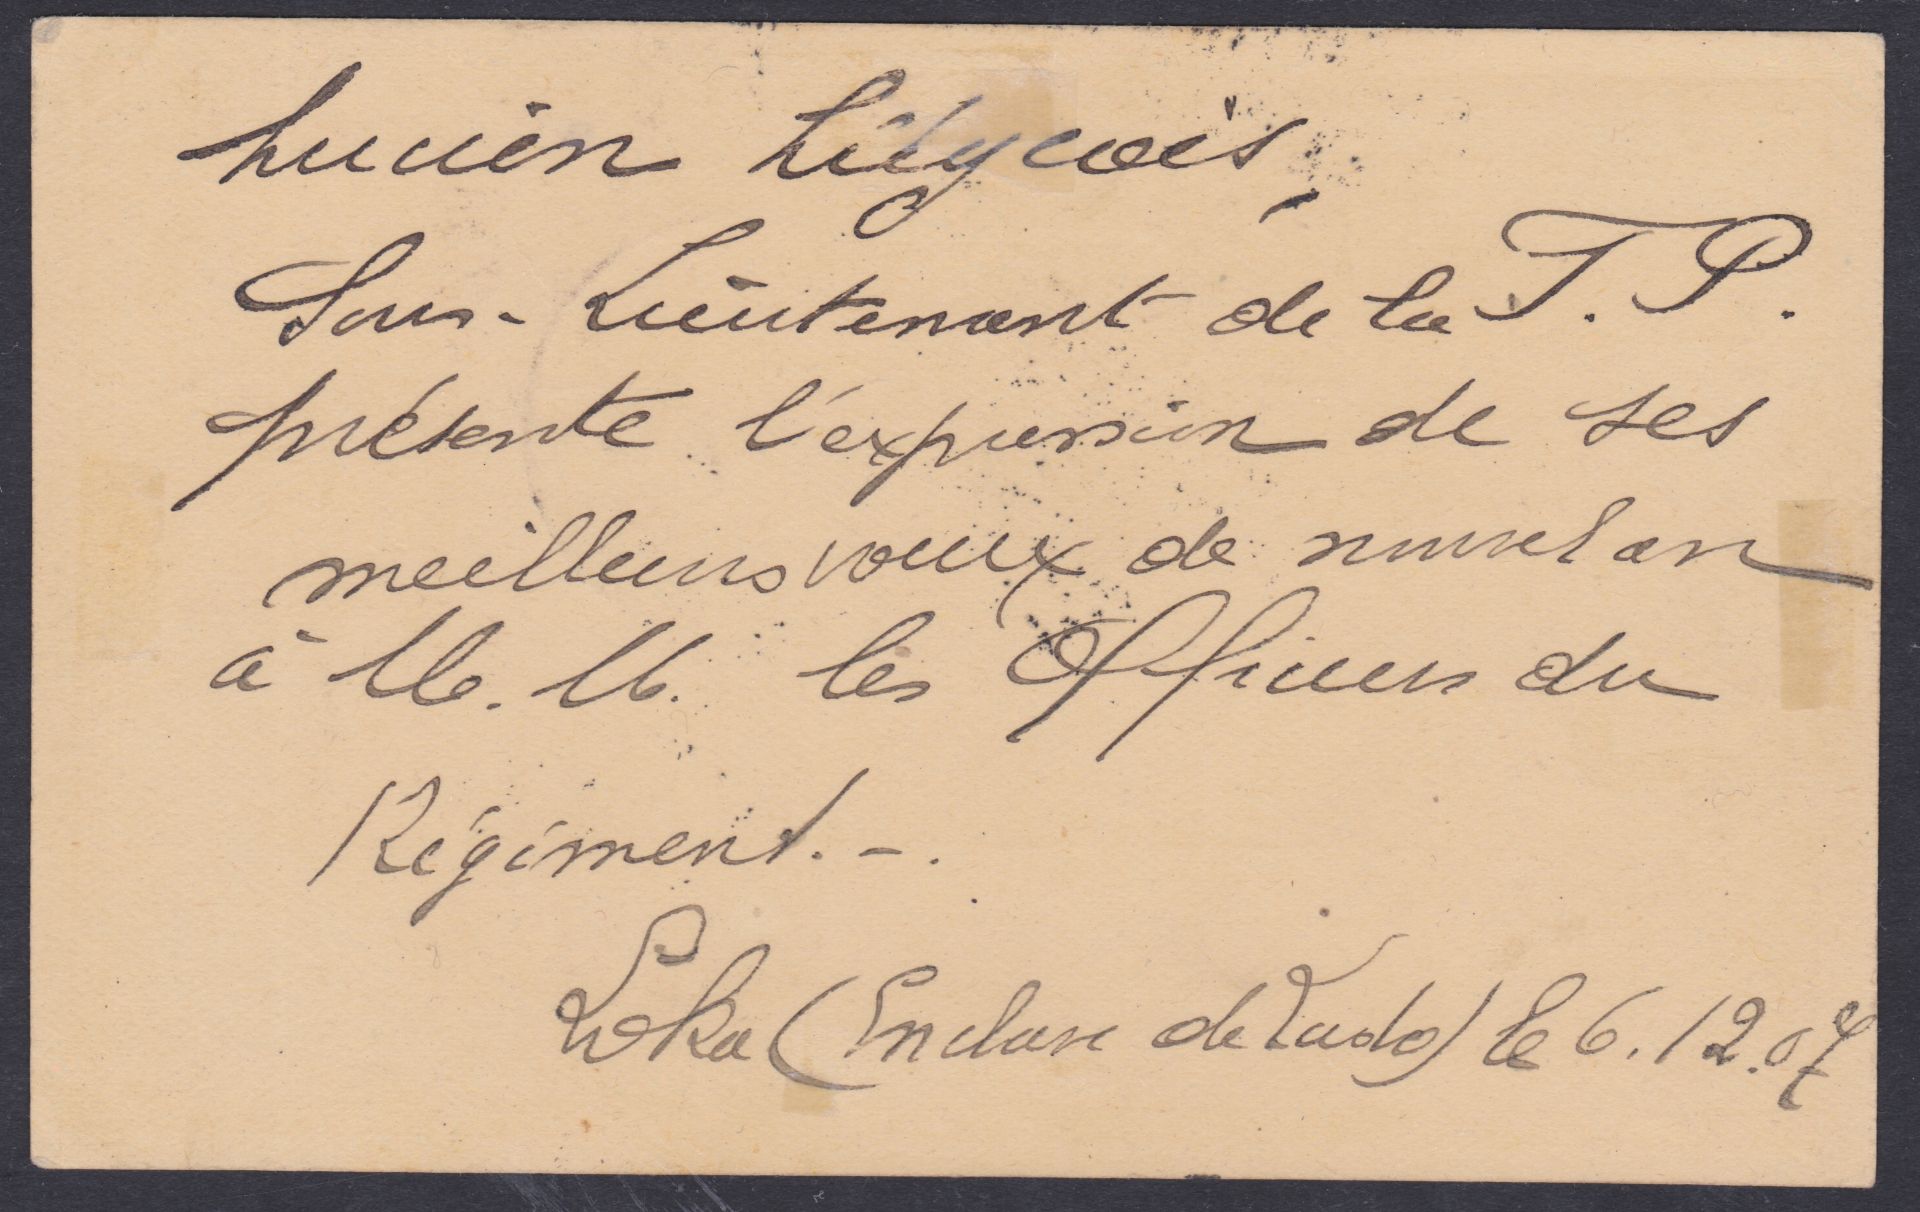 Lucien
Sous-Lieutenant de la F. P.
présente l'expression de ses
meilleurs voeux de nouvel an
à M. M. les Officiers du
Régiment. - .
Loka (Enclave de Lado) le 6.12.07